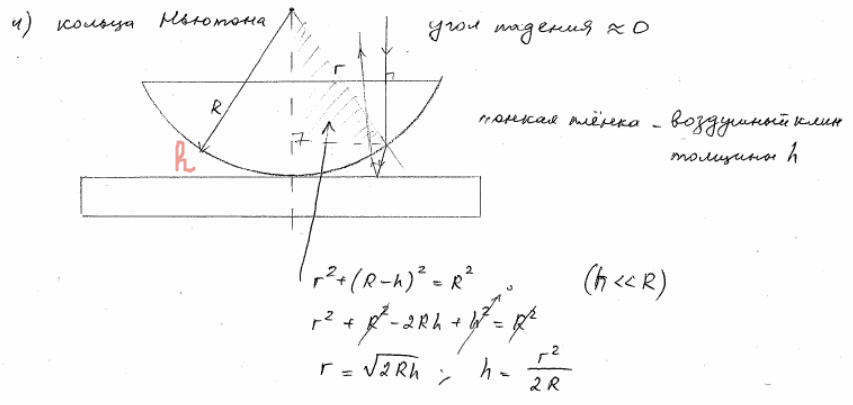 4) кольца Ньютона
угол падения ≈ 0
r
R
h
тонкая плёнка - воздушный клин
толщины h
r² + (R-h)² = R² (h << R)
r² + R² - 2Rh + h² = R²
r = √2Rh ; h = r²/2R